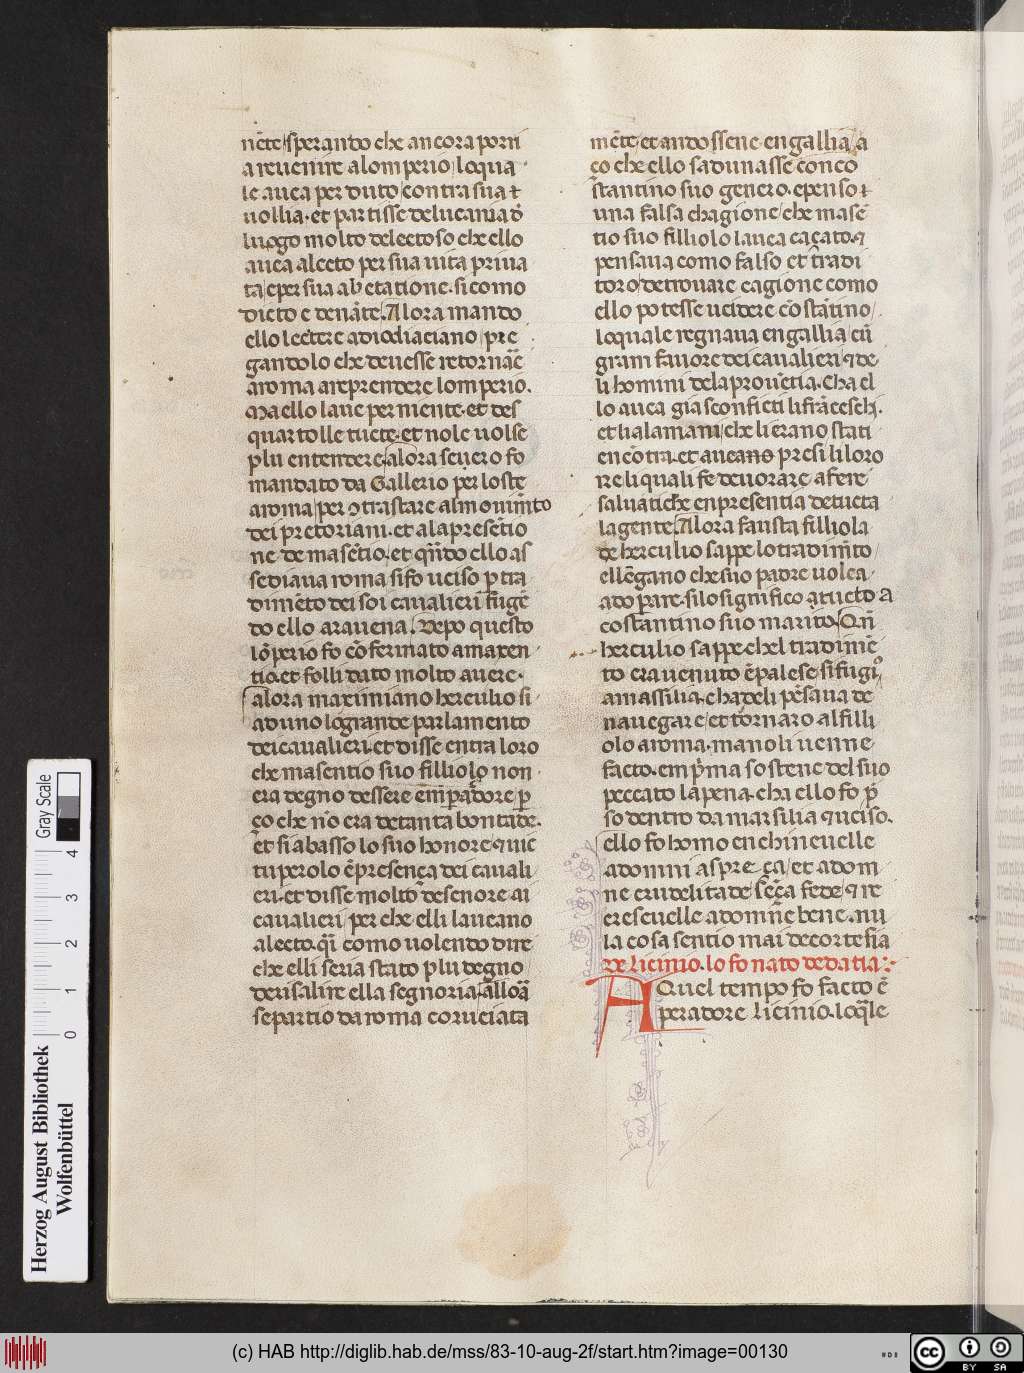 nēte sperando che ancora porri
a reuenire al omperio loqua
le auea per duto contra sua ⁊
uollia. et partisse de lucania d̄
luogo molto delectoso che ello
auea alecto per sua uita priua
ta e per sua abetatione. si como
dicto e denāte. Alora mando
ello lectere a diocliaciano pre
gandolo che deuesse retornāe
a roma a reprendere lomperio.
Ma ello laue per niente. et des
quartolle tucte. et nole uolse
plu entendere. alora seuero fo
mandato da Gallerio per loste
a roma per ꝯtrastare al mouim̄to
dei pretoriani. et a la presētio
ne de masētio. et qn̄do ello as
sediaua roma si fo uciso ꝑ tra
dimēto dei soi caualieri fugē
do ello a rauena. Depo questo
lōperio fo cōfermato a maxen
tio. et folli dato molto auere.
alora maximiano herculio si
aduno lo grande parlamento
dei caualieri. et disse entra loro
che masentio suo filliolo non
era degno dessere emperadore ꝑ
ço che nō era de tanta bontade.
et si abasso lo suo honore. ⁊ uic
tuperolo ēpresença dei cauali
eri. et disse molto desenore ai
caualieri per che elli laueano
alecto. q̄i como uolendo dire
che elli seria stato plu degno
de risalire ella segnoria. alloā
se partio da roma coruciata
mēte. et andossene en gallia a
ço che ello sadunasse con co
stantino suo genero. e penso ⁊
una falsa chagione che masē
tio suo filliolo lauea caçato. ⁊
pensaua como falso et tradi
toro de trouare cagione como
ello potesse ucidere cōstātino
lo quale regnaua en gallia cū
gram fauore dei caualieri ⁊ de
li homini dela prouētia. cha el
lo auea gia sconficti li frāceschi.
et li alamani che li erano stati
encōtra. et aueano presi li loro
re li quali fe deuorare a fere
saluatiche en presentia de tucta
la gente. Alora fausta filliola
de herculio sappe lo tradim̄to
ellēgano che suo padre uolea
adoꝑare. si lo significo a tucto a
costantino suo marito. Qn̄
herculio sappe chel tradimē
to era uenuto ēpalese. si fugio
a massilia. cha deli pēsaua de
nauegare et tornaro al filli
olo a roma. ma noli uenne
facto. emp̄ma sostene del suo
peccato la pena. cha ello fo p̄
so dentro da marsilia ⁊ uciso.
ello fo homo enchineuelle
ad omni aspreça et ad om
ne crudelitade sēça fede. ⁊ re
crescuelle ad omne bene. nu
la cosa sentio mai de cortesia
De licinio. lo fo nato de datia:
A Quel tempo fo facto ē
peradore Licinio. loq̄le
Herzog August Bibliothek
Wolfenbüttel
Gray Scale
0 1 2 3 4
(c) HAB http://diglib.hab.de/mss/83-10-aug-2f/start.htm?image=00130
cc BY SA